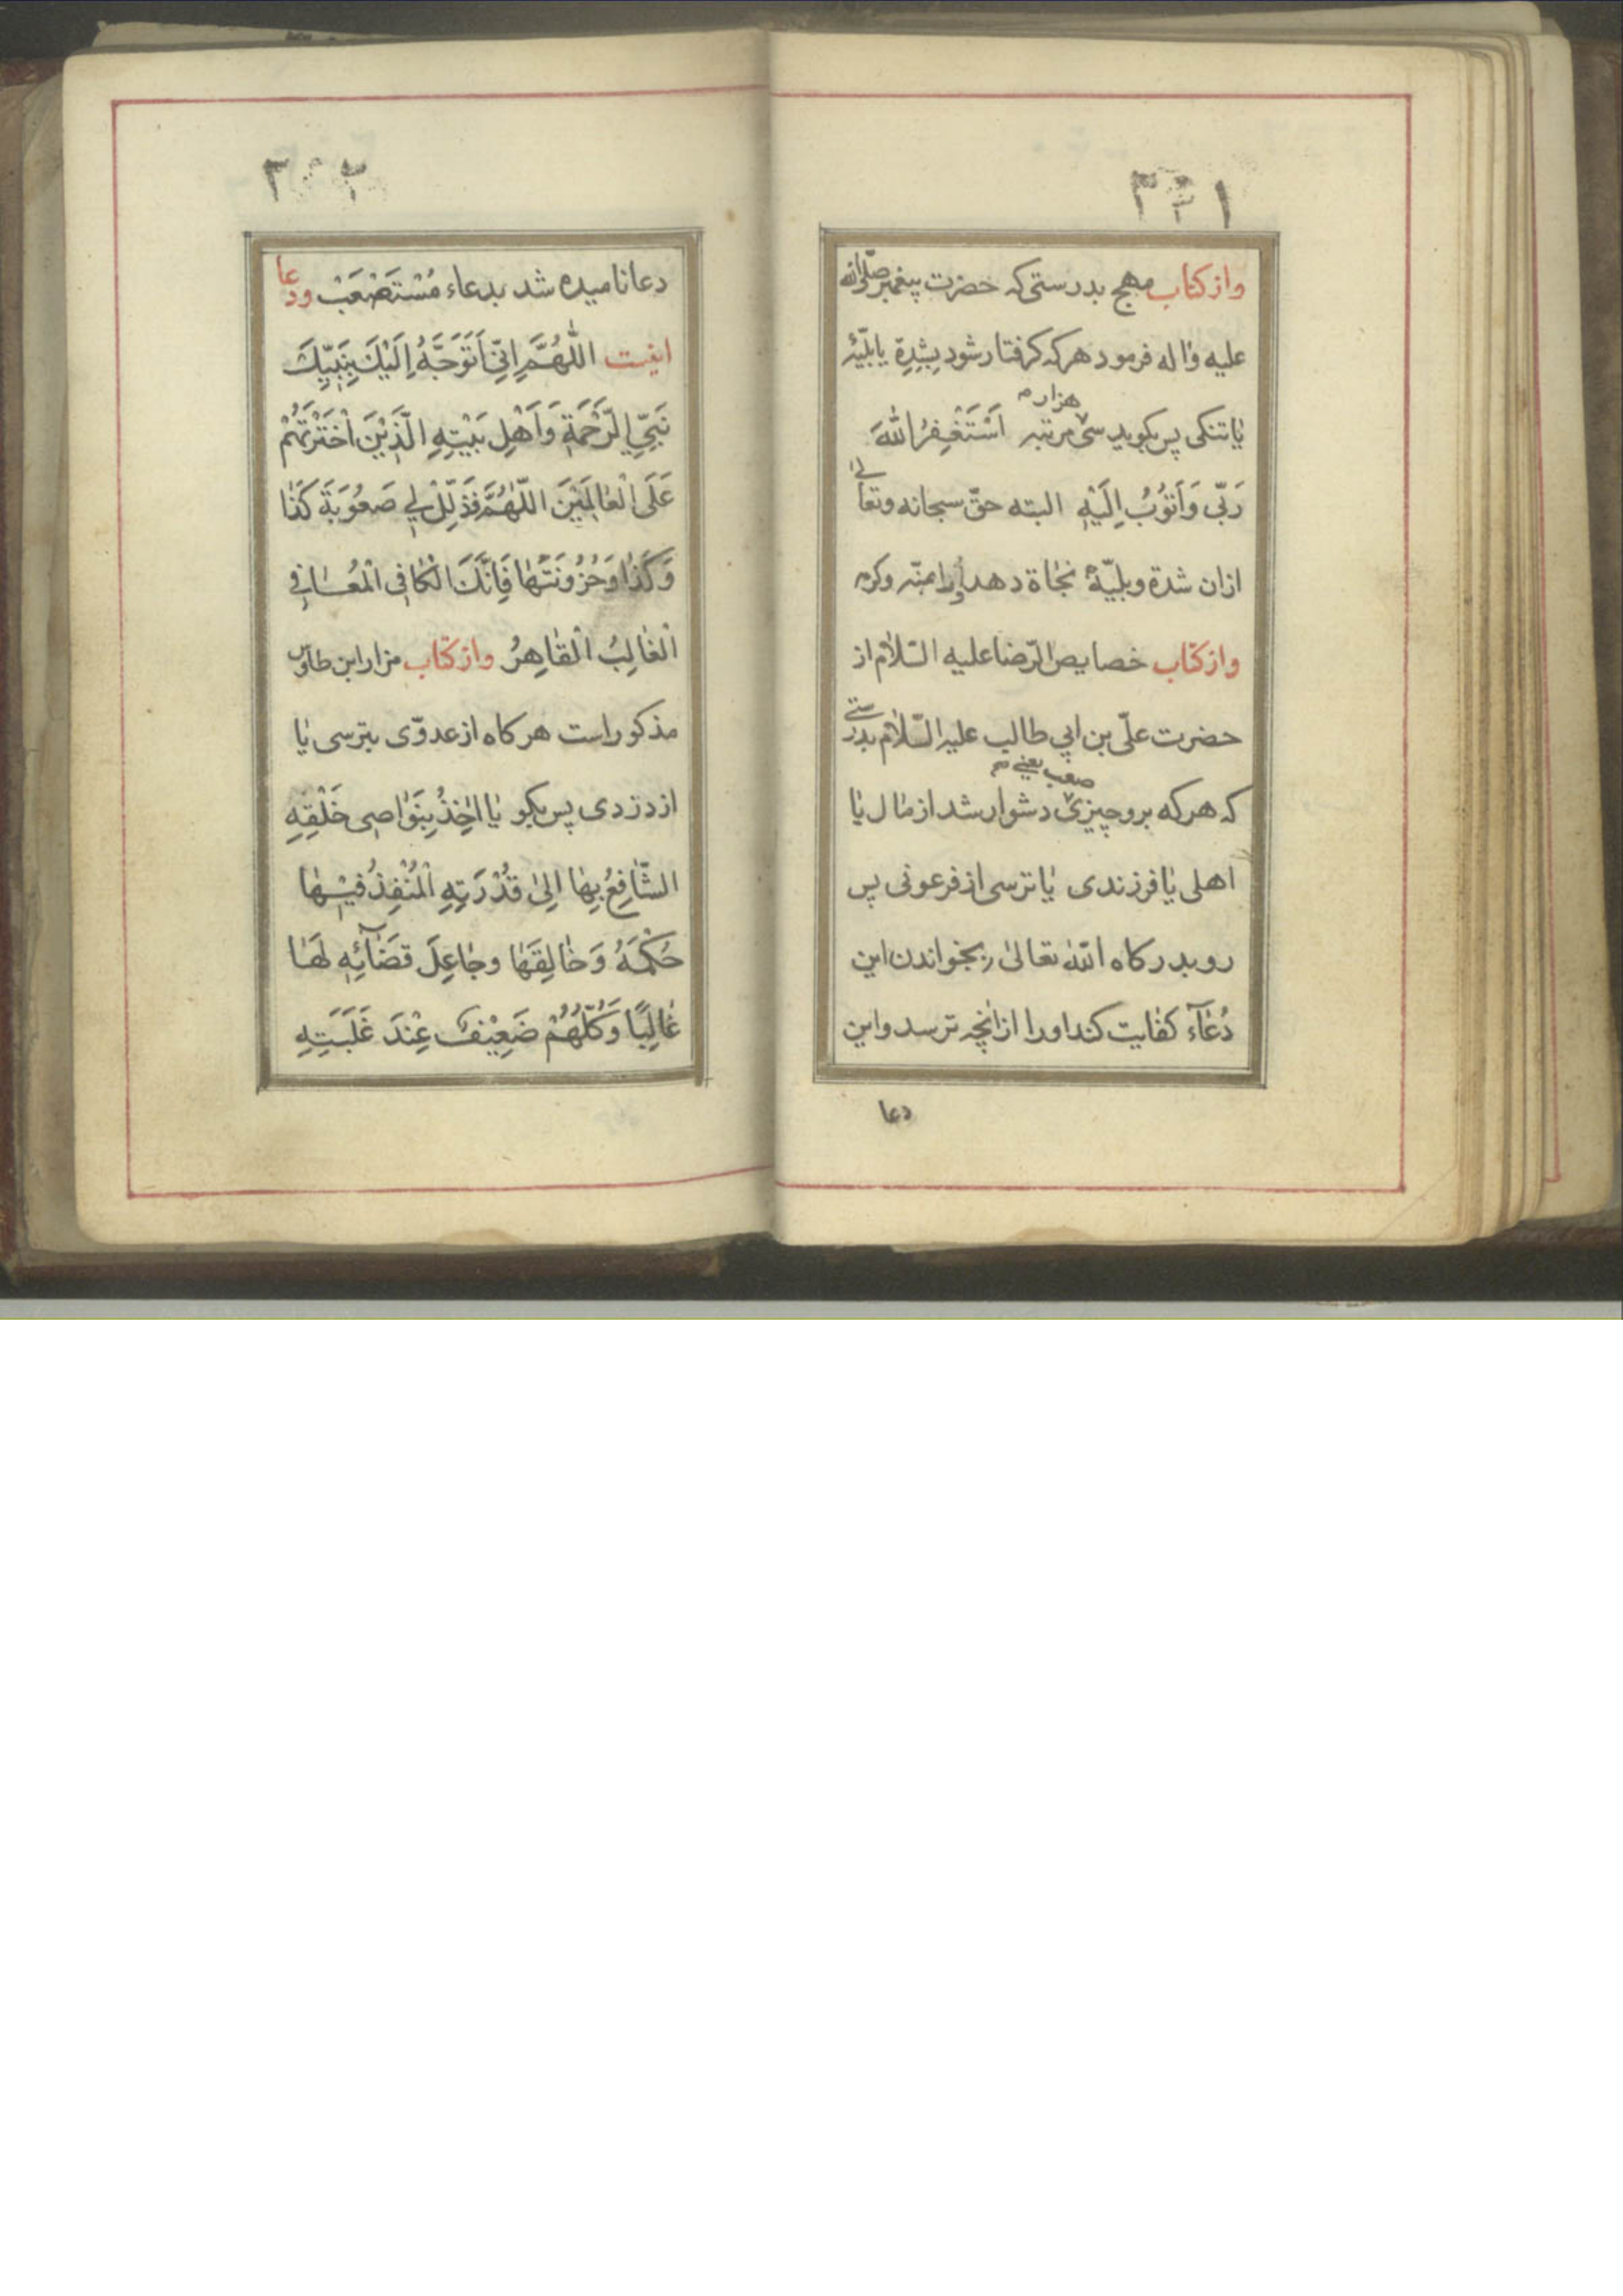 ۳۳۱
واز کتاب مهج بدرستی که حضرت پیغمبر صلّی الله
علیه واله فرمود هرکه کرفتار شود بِشِدةٍ یا بلیّهٔ
یا تنکی پس بکوید سی هزار مرتبه اَسْتَغْفِرُ اللهَ
رَبّی وَاَتوُبُ اِلَیْهِ البته حقّ سبحانه وتعالی
ازان شدة وبلیّهٔ نجاة دهد اورا بمنّه وکرمه
واز کتاب خصایص الرّضا علیه السّلام از
حضرت علّی بن ابی طالب علیه السّلام بدرستی
که هرکه برو چیزی صعب یعنی دشوار شد از مال یا
اهلی یا فرزندی یا ترسی از فرعونی پس
رو بدرکاه الله تعالیٰ بخواندن این
دُعآء کفایت کند اورا ازانچه ترسد واین
دعا
۳۳۲
دعا نامیده شد بدعاء مُسْتَصْعَبْ ودعا
اینست اللّهُمَّ اِنّی اَتَوَجَّهُ اِلَیْكَ بِنَبِیِّكَ
نَبِیِّ الرَّحْمَةِ وَاَهْلِ بَیْتِهِ الَّذَیْنَ اخْتَرْتَهُمْ
عَلَی الْعٰالَمَیْنَ اللّهُمَّ فَذَلِّلْ لی صَعُوبَةَ کَذٰا
وَکَذٰا وَحُزُونَتَهٰا فَاِنَّكَ الْکٰافِی الْمُعٰافی
الْغٰالِبُ الْقٰاهِرُ واز کتاب مزار ابن طاوس
مذکور است هرکاه از عدوّی بترسی یا
از دزدی پس بکو یٰا اٰخِذُ بِنَوٰاصِی خَلْقِهِ
السّٰافِعُ بِهٰا اِلیٰ قُدْرَتِهِ الْمُنْفِذُ فیْهٰا
حُکْمَهُ وَخٰالِقَهٰا وجٰاعِلَ قَضٰآئِهِ لَهٰا
غٰالِبًا وَکُلُّهُمْ ضَعِیْفٌ عِنْدَ غَلَبَتِهِ